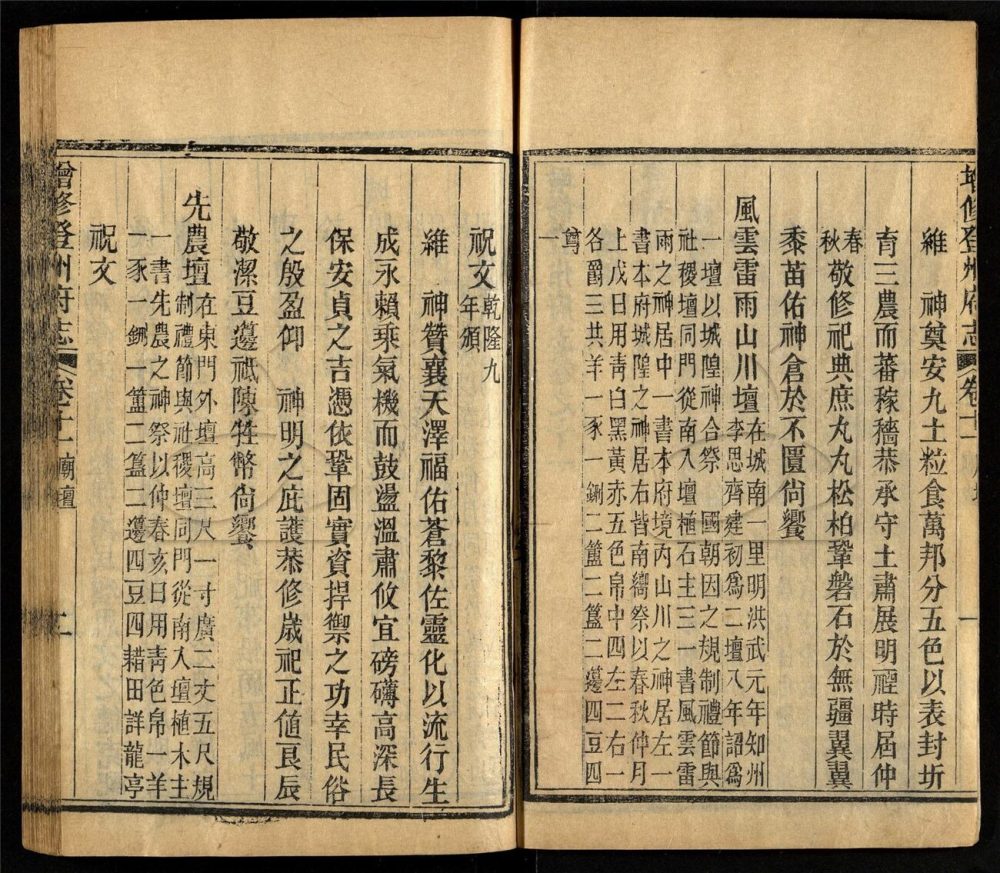 增修登州府志 卷十一 一
維　神奠安九土粒食萬邦分五色以表封圻
育三農而蕃稼穡恭承守土肅展明禋時居仲
春秋敬修祀典庶丸丸松柏鞏磐石於無疆翼翼
黍苗佑神倉於不匱尙饗
風雲雷雨山川壇在城南一里明洪武元年知州
李思齊建初爲二壇入年詔爲
一壇以城隍神合祭　國朝因之規制禮節與
社稷壇同門從南入壇植石主三一書風雲雷
雨之神居中一書本府境內山川之神居左一
書本府城隍之神居右皆南嚮祭以春秋仲月
上戊日用靑白黑黃赤五色帛中四左二右一
各爵三共羊一豕一鉶二簠二簋二籩四豆四
尊一
祝文乾隆九
年頒
維　神贊襄天澤福佑蒼黎佐靈化以流行生
成永賴乘氣機而鼓盪溫肅攸宜磅礡高深長
保安貞之吉憑依鞏固實資捍禦之功幸民俗
之殷盈仰　神明之庇護恭修歲祀正値良辰
敬潔豆籩祗陳牲幣尙饗
先農壇在東門外壇高三尺一寸廣二丈五尺規
制禮節與社稷壇同門從南入壇植木主
一書先農之神祭以仲春亥日用靑色帛一羊
一豕一鉶一簠二簋二籩四豆四耤田詳龍亭
祝文
增修登州府志 卷十一 廟壇 二